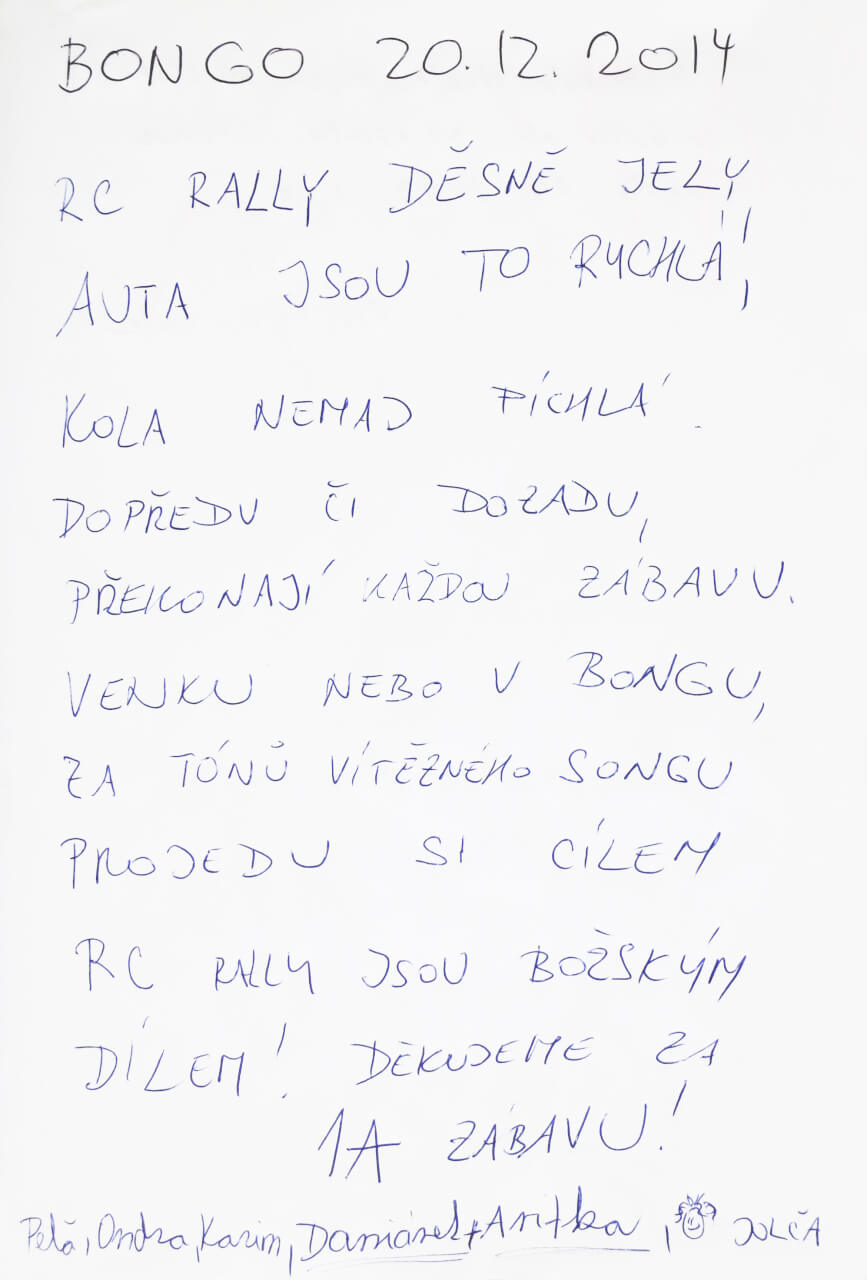 BONGO 20.12.2014
RC RALLY DĚSNĚ JELY,
AUTA JSOU TO RYCHLÁ!,
KOLA NEMAJÍ PÍCHLÁ.
DOPŘEDU ČI DOZADU,
PŘEKONAJÍ KAŽDOU ZÁBAVU.
VENKU NEBO V BONGU,
ZA TÓNŮ VÍTĚZNÉHO SONGU
PROJEDU SI CÍLEM
RC RALLY JSOU BOŽSKÝM
DÍLEM! DĚKUJEME ZA
1A ZÁBAVU!
Ondra, Karim, Damiánek + Anitka, JULČA